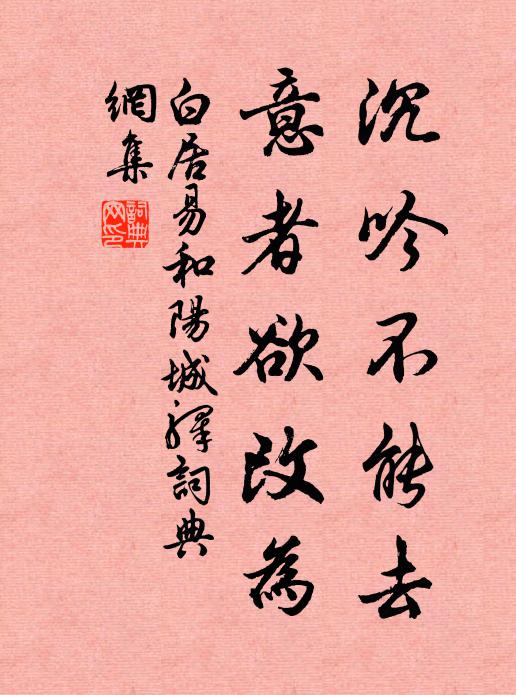 沉吟不能去
意者欲改為
白居易和陽城驛詞典
網集
詞典
网印